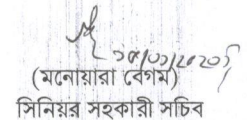 (মনোয়ারা বেগম)
সিনিয়র সহকারী সচিব